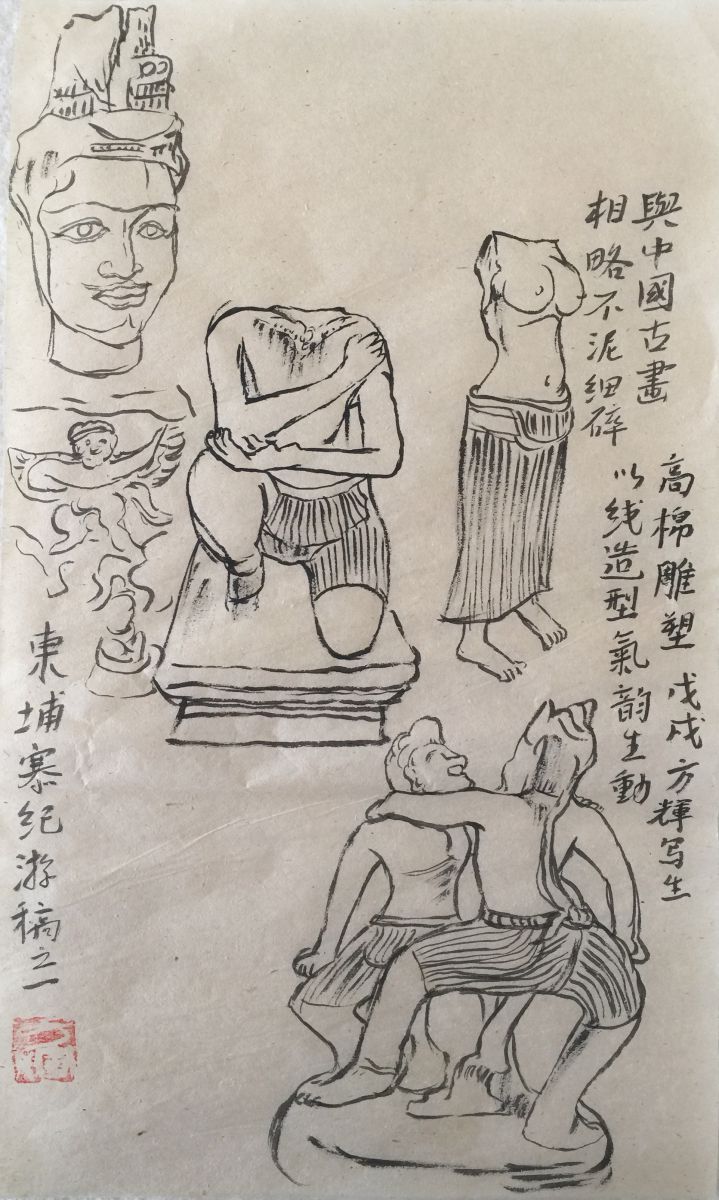 與中國古畫
相略不泥细碎
高棉雕塑 戊戌方輝写生
以线造型氣韵生動
柬埔寨纪游稿之一